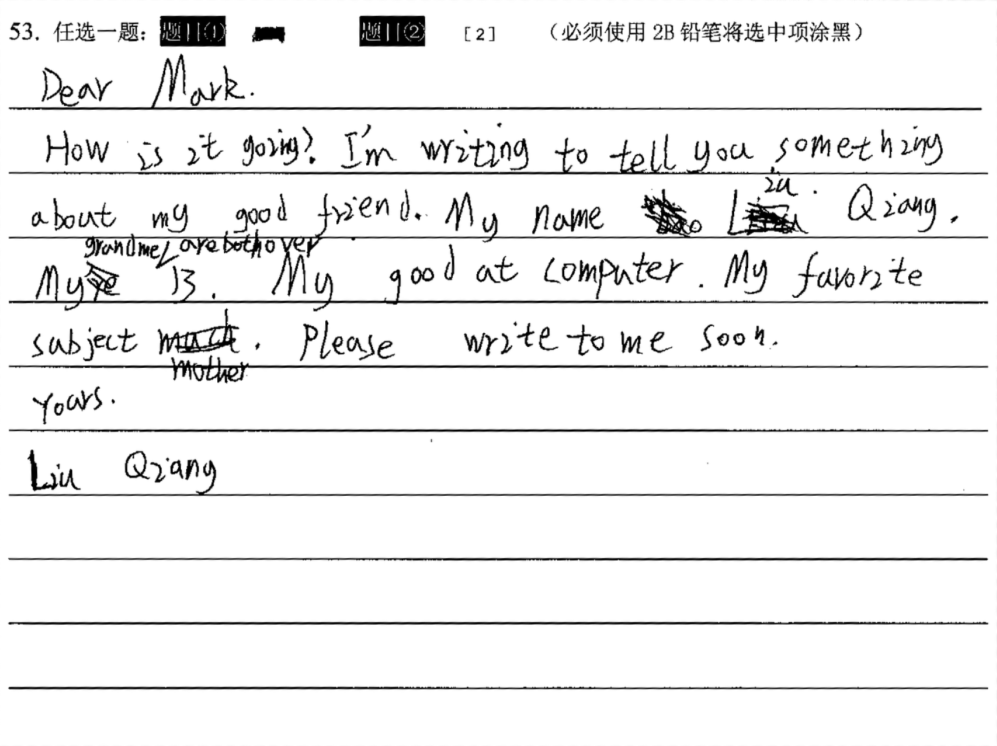 53. 任选一题: 题目① 题目② [2] (必须使用 2B 铅笔将选中项涂黑)
Dear Mark.
How is it going? I'm writing to tell you something
about my good friend. My name Liu Qiang.
My grandme are both over 13. My good at computer. My favorite
subject mother. Please write to me soon.
Yours.
Liu Qiang